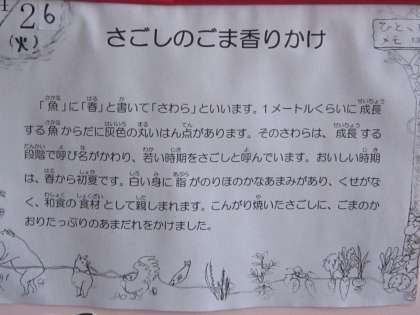 26
(火)
さごしのごま香りかけ
ひとくち
メモ
「魚」に「春」と書いて「さわら」といいます。1メートルくらいに成長
する魚からだに灰色の丸いはん点があります。そのさわらは、成長する
段階で呼び名がかわり、若い時期をさごしと呼んでいます。おいしい時期
は、春から初夏です。白い身に脂がのりほのかなあまみがあり、くせがな
く、和食の食材として親しまれます。こんがり焼いたさごしに、ごまのか
おりたっぷりのあまだれをかけました。